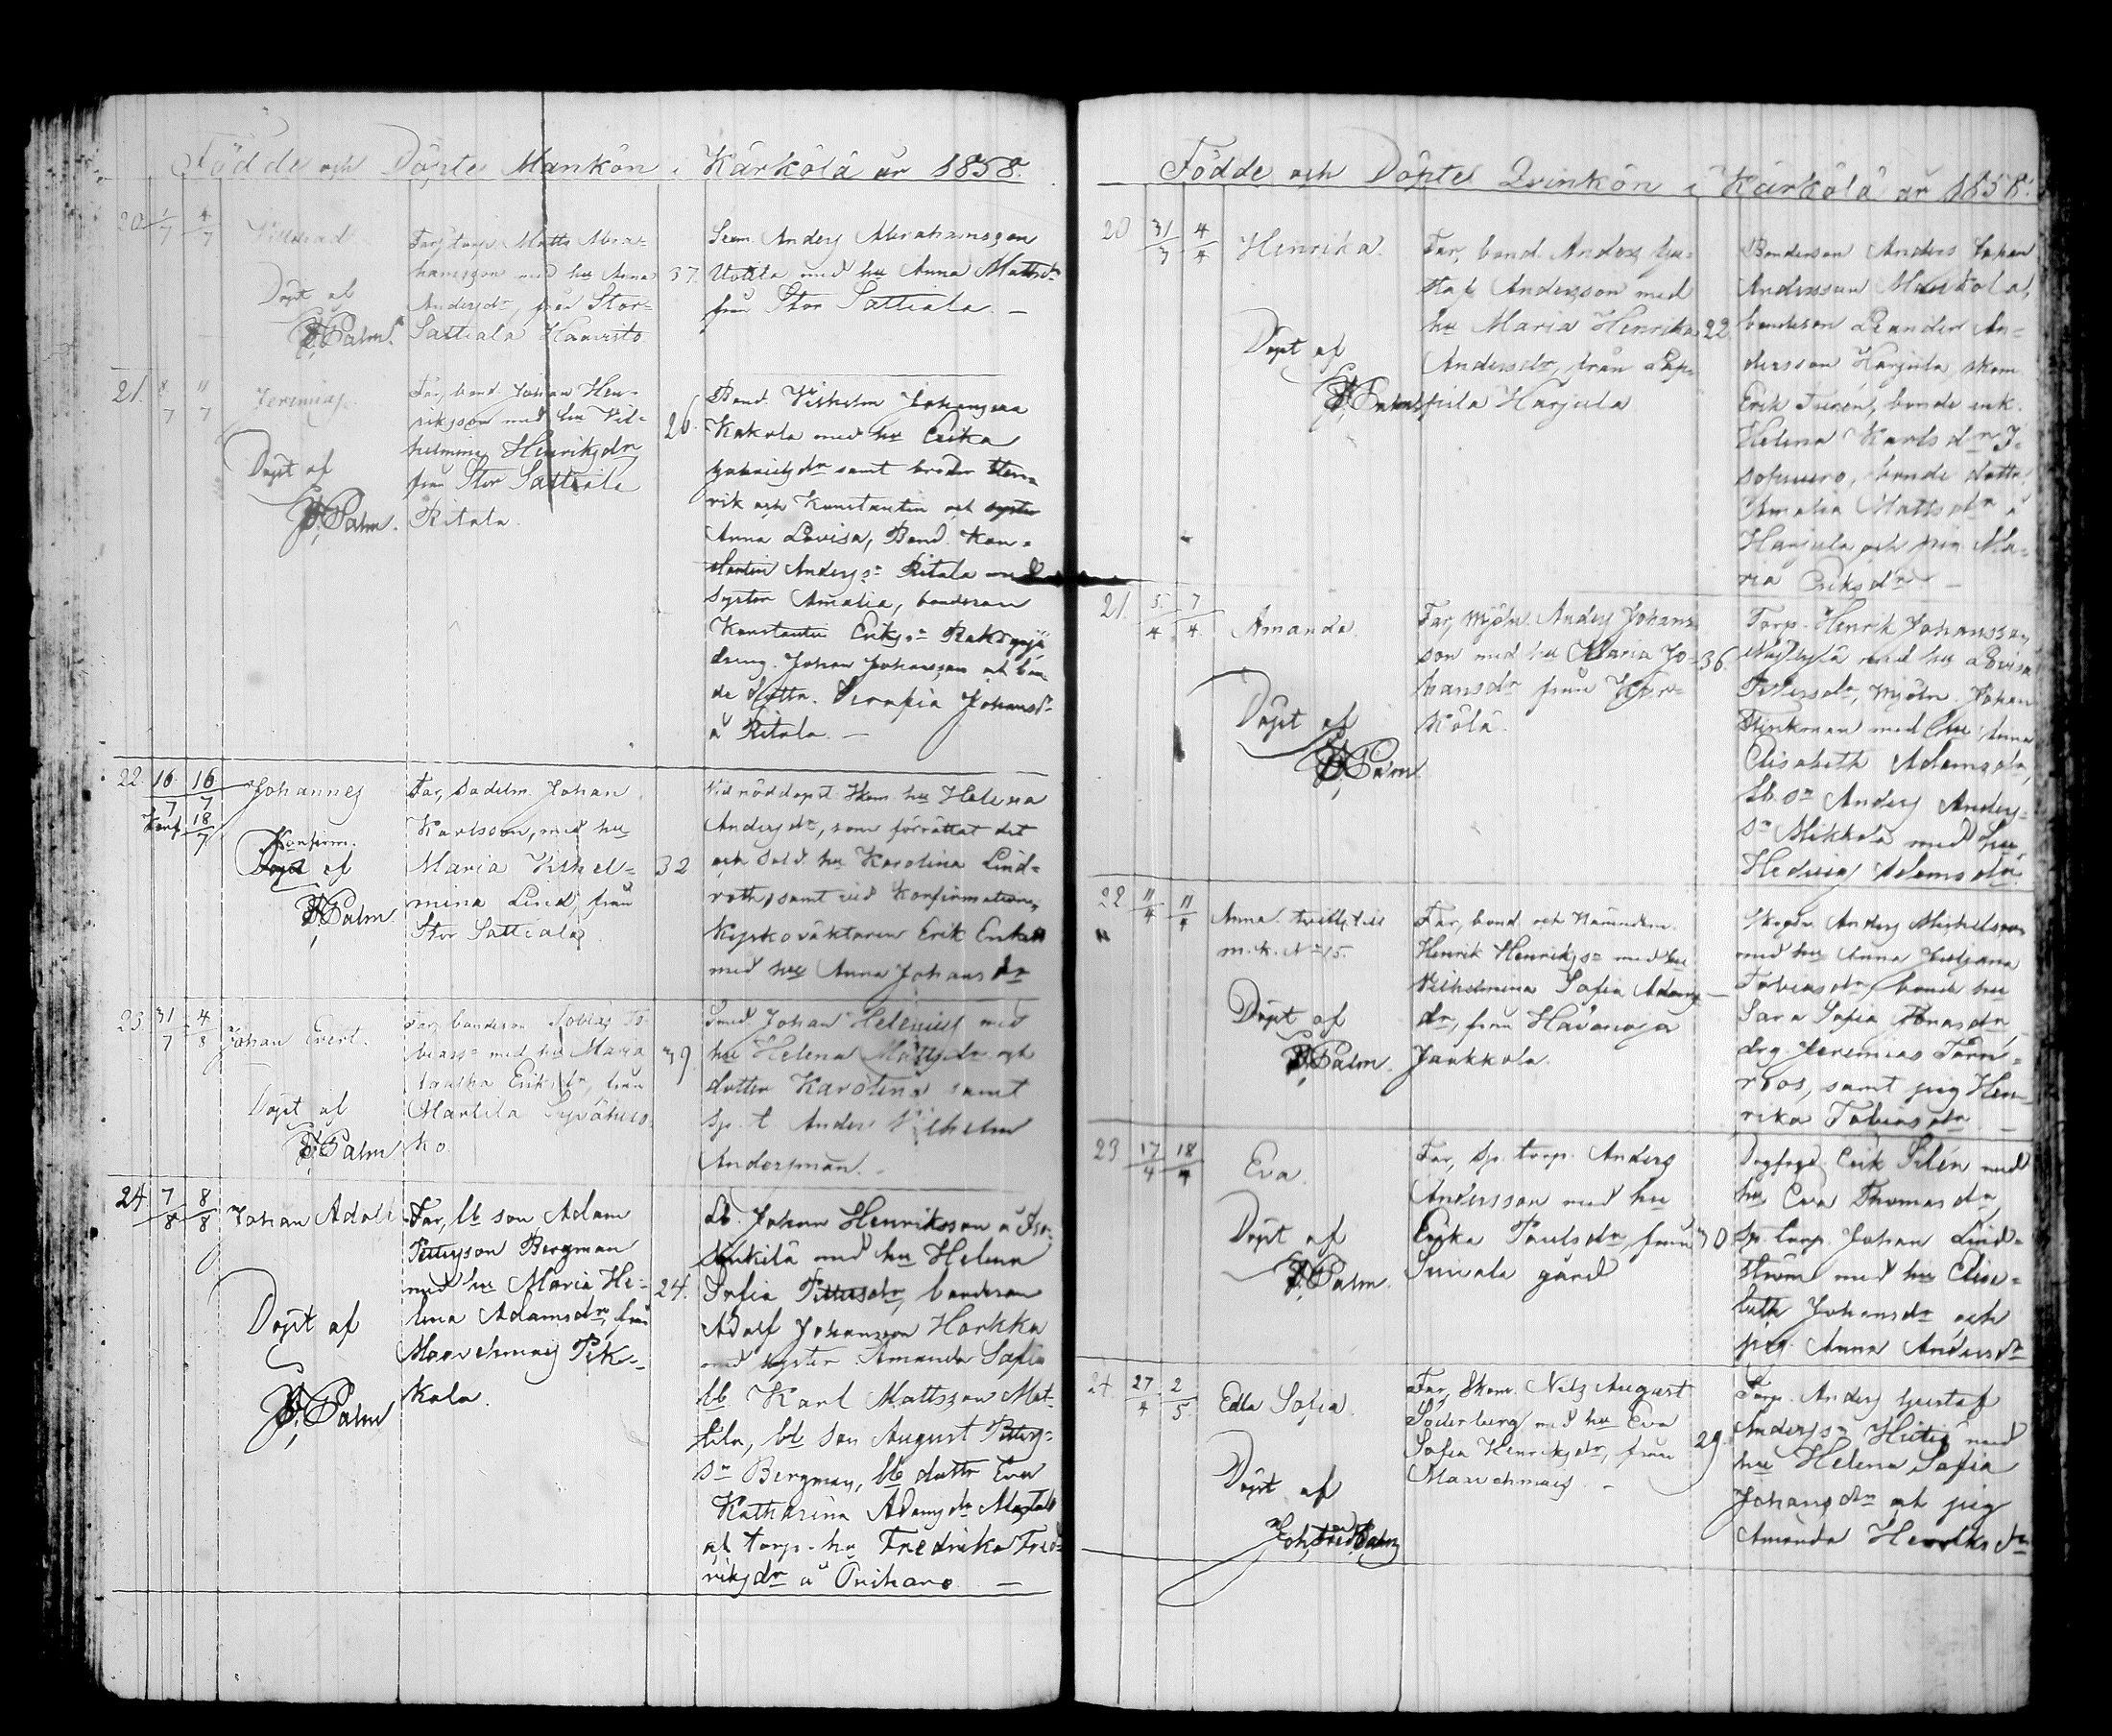 Födde och Döpte Mankön i Kärkölä år 1858.
20. 1/7 4/7
Far, torp. Matts Abra-
hamsson med hu Anna 37.
Andersdr, från Stor-
Sattiala Haavisto
Döpt af
Palm.
Anders Abrahamsson
Uotila med hu Anna Mattsdr
från Stor Sattiala. —
21. 8/7 11/7 Jeremias.
Far, bond. Johan Hen-
riksson med hu Vil-
helmina Henriksdr 26.
från Stor Sattiala
Ritala.
Döpt af
Palm.
Bond. Vilhelm Johansson
Kakola med hu Erika
Gabrielsdr samt broder Hen-
rik och Konstantin och syster
Anna Lovisa, Bond. Kon-
stantin Anderss:n Ritala med
syster Amalia, bondeson
Konstantin Erikss:n
dreng. Johan Johansson och bon-
de dottr. Serafia Johansdr
å Ritala. —
22. 16/7 16/7 Johannes
Konf. 18/7
Konfirm.
Döpt af
Palm
Far, Sadelm. Johan
Karlsson, med hu
Maria Vilhel- 32
mina Lind, från
Stor Sattiala.
Vid nöddopet Skom. hu Helena
Andersdr, som förrättat det
och Sold. hu Karolina Lind-
roth, samt vid Konfirmationen,
Kyrkoväktaren Erik
med hu Anna Johansdr
23. 31/7 4/8 Johan Evert.
Far, bondeson Tobias To-
biass:n med hu Maria 39.
Eriksdr, från
Marttila
ko.
Döpt af
Palm
Smed Johan Helenius med
hu Helena Mattsdr och
dotter Karolina samt
Sp. t. Anders Vilhelm
Andersman. —
24. 7/8 8/8 Johan Adolf
Far, lb son Adam
Pettersson Bergman
med hu Maria He- 24.
lena Adamsdr, från
Maavehmais Pik-
kala.
Döpt af
Palm
Lb. Johan Henriksson å Iso-
med hu Helena
Sofia Pettersdr, bondeson
Adolf Johansson Harkka
med syster Amanda Sofia
lb Karl Mattsson Mat-
tila, lb son August Petters-
s:n Bergman, lb dottr Eva
Katharina Adamsdr
och torp. hu Fredrika Fred-
riksdr å
Födde och Döpte Qvinkön i Kärkölä år 1858.
20 31/3 4/4 Henrika.
Far, bond. Anders Gu-
staf Andersson med
hu Maria Henrika 22.
Andersdr, från Lap-
pila Harjula
Döpt af
Palm
Bondeson Anders Johan
Andersson Maukola,
bondeson Leander An-
dersson Harjula, skom.
Erik Turén, bonde enk.
Helena Karlsdr I-
bonde dottr.
Amalia Mattsdr å
Harjula och pig. Ma-
ria Eriksdr —
21. 5/4 7/4 Amanda.
Far, mjöln. Anders Johans-
son med hu Maria Jo- 36.
hansdr från Kär-
kölä.
Döpt af
Palm
Torp. Henrik Johansson
med hu Lovisa
Pettersdr, mjöln. Johan
Stenkman med hu Anna
Elisabeth Adamsdr,
lb. s:n Anders Anders-
s:n Mikkola med hu
Hedvig Adamsdr.
22 11/4 11/4 Anna. tvilling till
m.k. N:o 15.
Far, bond. och Nämndem.
Henrik Henrikss:n med hu
Vilhelmina Sofia Adams- —
dr, från Hävönoja
Jaakkola.
Döpt af
Palm.
Anders Michelsson
med hu Anna Juliana
Tobiasdr, bonde hu
Sara Sofia Jonasdr,
drg. Jeremias Törn-
roos, samt pig Hen-
rika Tobiasdr —
23 17/4 18/4 Eva.
Far, Sp. torp. Anders
Andersson med hu
Erika Paulsdr, från 30
gård
Döpt af
Palm.
Dagfogd. Erik Silén med
hu Eva Thomasdr,
Sp. torp. Johan Lind-
ström med hu Elisa-
beth Johansdr och
pig. Anna Andersdr
24. 27/4 2/5 Edla Sofia.
Far, Skom. Nils August
Söderberg med hu Eva
Sofia Henriksdr, från 29.
Maavehmais. —
Döpt af
Palm
Torp. Anders Gustaf
Anderss:n med
hu Helena Sofia
Johansdr och pig
Amanda Henriksdr